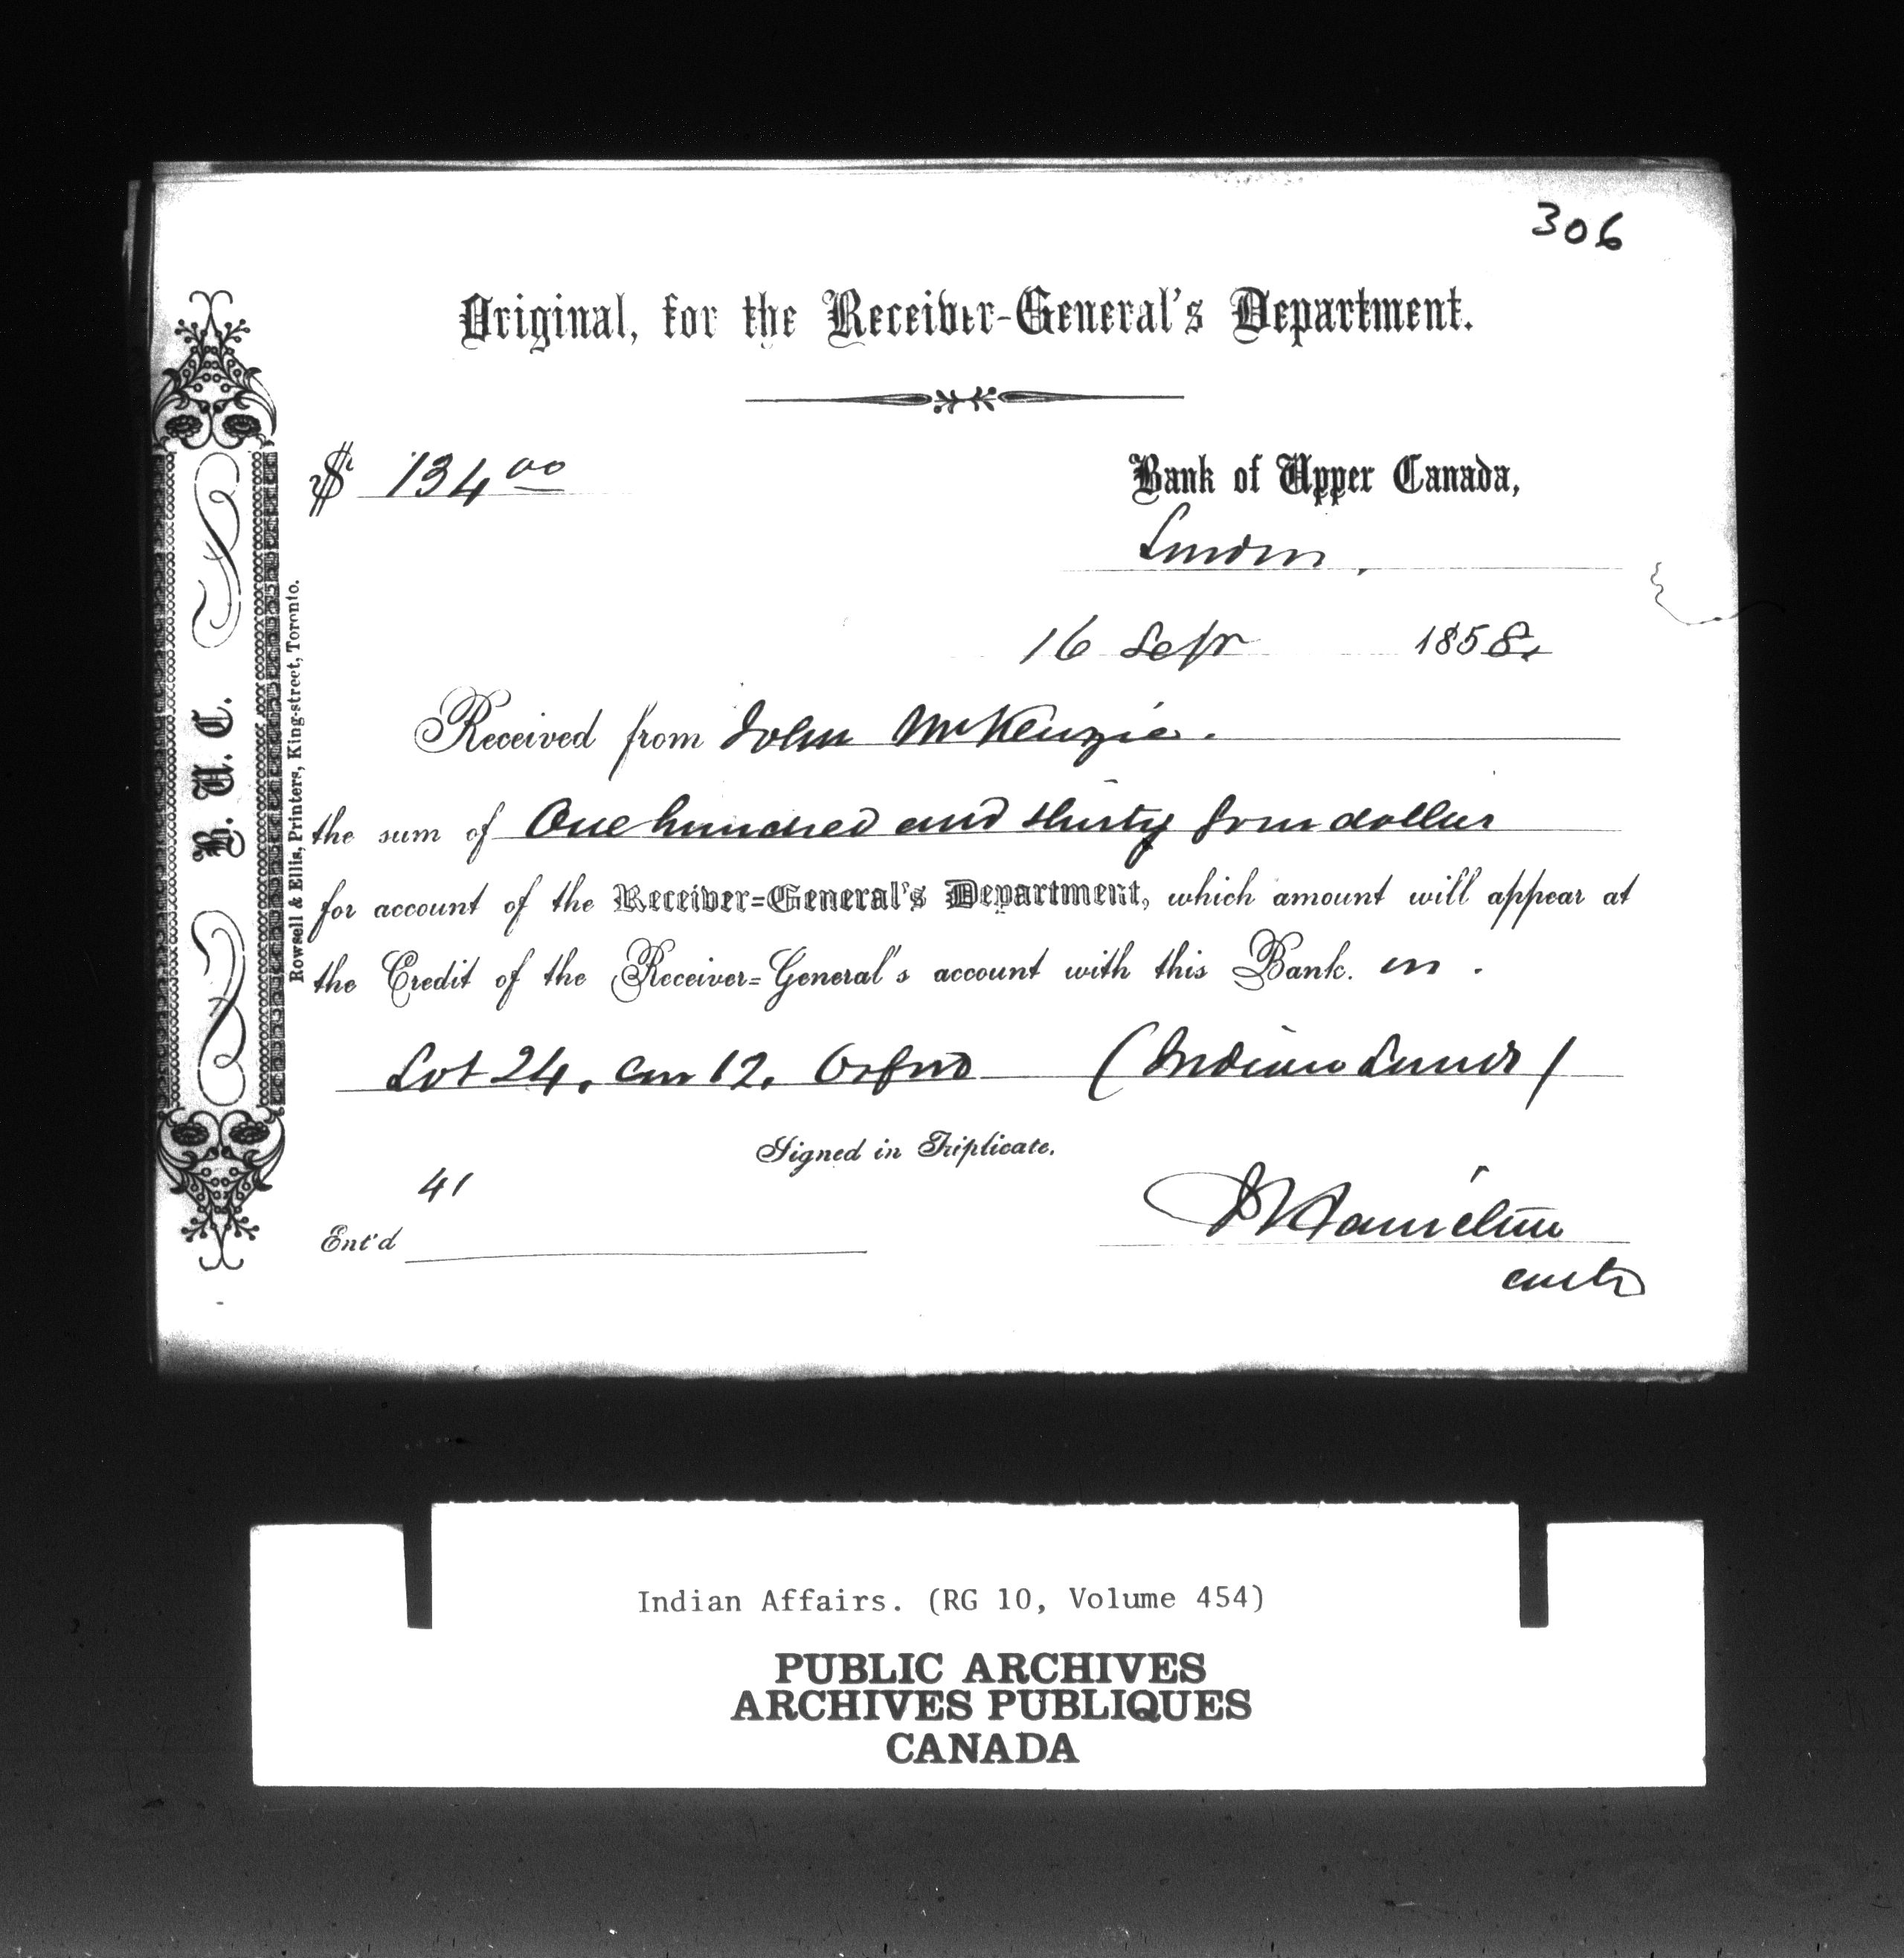 306
Original, for the Receiver-General's Department.
$ 134 00
Bank of Upper Canada,
London,
16 Sepr 1858.
Received from John McKenzie.
the sum of One hundred and thirty four dollars
for account of the Receiver-General's Department, which amount will appear at
the Credit of the Receiver-General's account with this Bank. on .
Lot 24, Con 12. Orford (Indian Lands)
Signed in Triplicate.
41
Ent'd
Hamilton
B. U. C.
Rowsell & Ellis, Printers, King-street, Toronto.
Indian Affairs. (RG 10, Volume 454)
PUBLIC ARCHIVES
ARCHIVES PUBLIQUES
CANADA